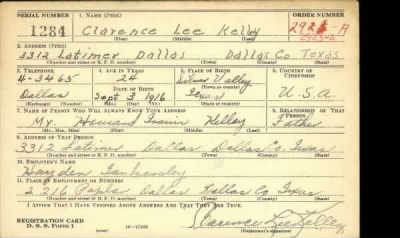 SERIAL NUMBER 1. NAME (Print) ORDER NUMBER
1284 Clarence Lee Kelley 2925-A
(First) (Middle) (Last) 2925-A
2. ADDRESS (Print)
3312 Latimer Dallas Dallas Co Texas
(Number and street or R. F. D. number) (Town) (County) (State)
3. TELEPHONE 4. AGE IN YEARS 5. PLACE OF BIRTH 6. COUNTRY OF CITIZENSHIP
4-3465 24 Silver Valley
DATE OF BIRTH (Town or county)
Dallas Sept 3 1916 Texas U.S.A.
(Exchange) (Number) (Mo.) (Day) (Yr.) (State or country)
7. NAME OF PERSON WHO WILL ALWAYS KNOW YOUR ADDRESS 8. RELATIONSHIP OF THAT PERSON
Mr. Howard Kelley Father
(Mr., Mrs., Miss) (First) (Middle) (Last)
9. ADDRESS OF THAT PERSON
3312 Latimer Dallas Dallas Co. Texas
(Number and street or R. F. D. number) (Town) (County) (State)
10. EMPLOYER'S NAME
Hayden
11. PLACE OF EMPLOYMENT OR BUSINESS
2216 Dallas Dallas Co Texas
(Number and street or R. F. D. number) (Town) (County) (State)
I AFFIRM THAT I HAVE VERIFIED ABOVE ANSWERS AND THAT THEY ARE TRUE.
REGISTRATION CARD
D. S. S. Form 1 Clarence Lee Kelley
(Registrant's signature)